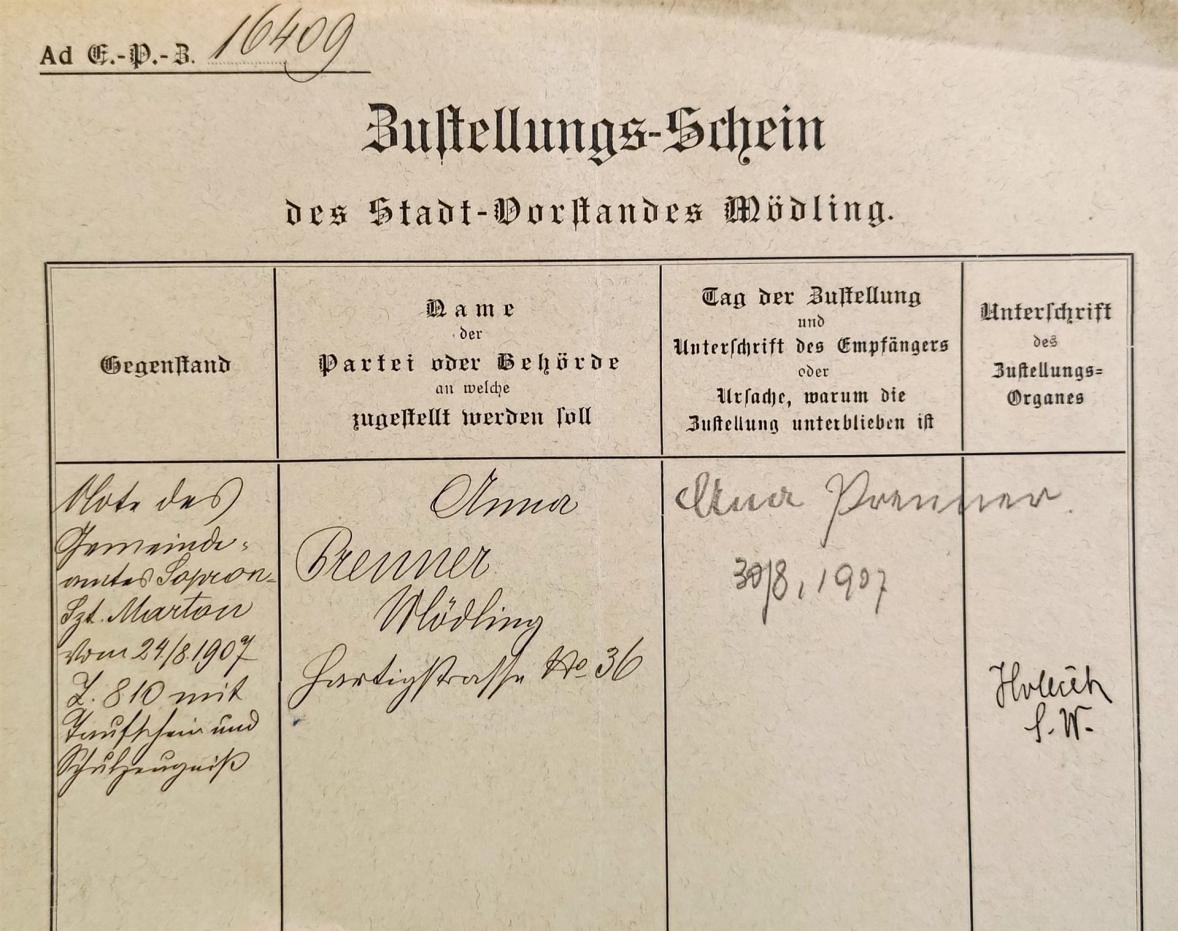 Ad E.-P.-Z. 16409
Zustellungs-Schein
des Stadt-Vorstandes Mödling.
Gegenstand
Name
der
Partei oder Behörde
an welche
zugestellt werden soll
Tag der Zustellung
und
Unterschrift des Empfängers
oder
Ursache, warum die
Zustellung unterblieben ist
Unterschrift
des
Zustellungs=
Organes
Note des
Gemeinde-
amtes Sopron-
Szt. Marton
vom 24/8 1907
Z. 810 mit
Taufschein und
Schulzeugniß
Anna
Prenner
Mödling
Hartigstrasse No 36
Anna Prenner.
30/8, 1907
S.W.